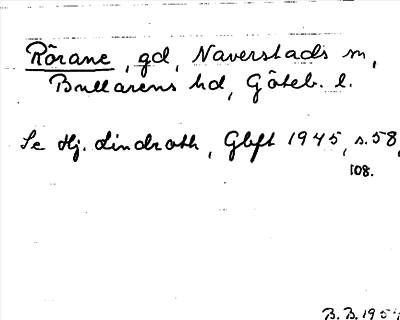 Rörane, gd, Naverstads sn,
Bullarens hd, Göteb. l.
Se Hj. Lindroth, Gbft 1945, s. 58,
108.
B. B. 195